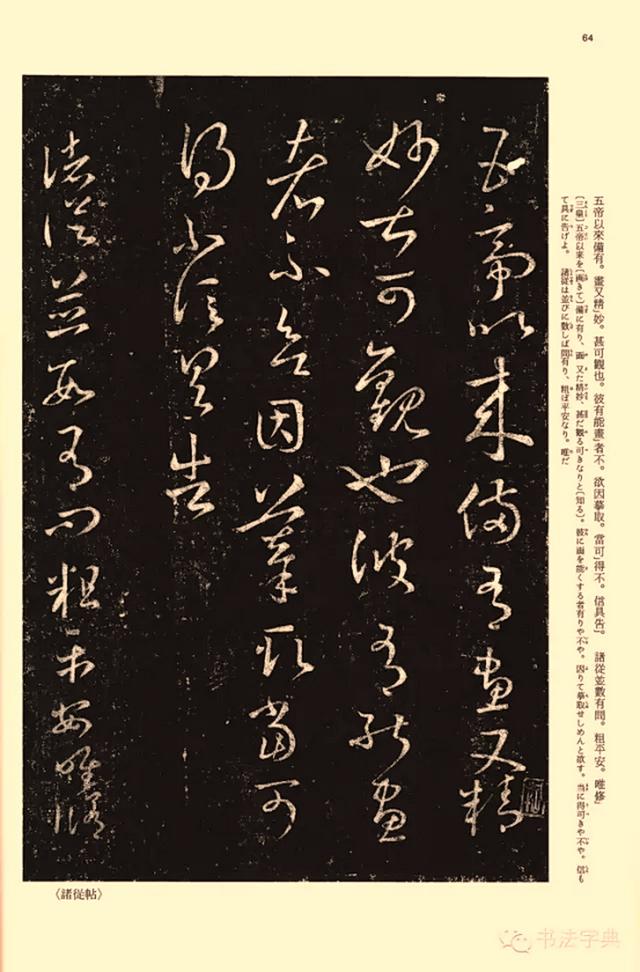 64
五帝以來備有畫又精
妙甚可觀也彼有能畫
者不欲因摹取當可
得不信具告
諸從並數有問粗平安唯脩
五帝以來備有。畫又精」妙。甚可觀也。彼有能畫」者不。欲因摹取。當可」得不。信具告」。 諸從並數有問。粗平安。唯修」
〔三皇〕五帝以来を〔画きて〕備に有り、画又た精妙、甚だ観る可きなりと〔知る〕。彼に画を能くする者有りや不や。因りて摹取せしめんと欲す。当に得可きや不や。信も
て具に告げよ。 諸従は並びに数しば問有り、粗ぼ平安なり。唯だ
〈諸從帖〉
书法字典